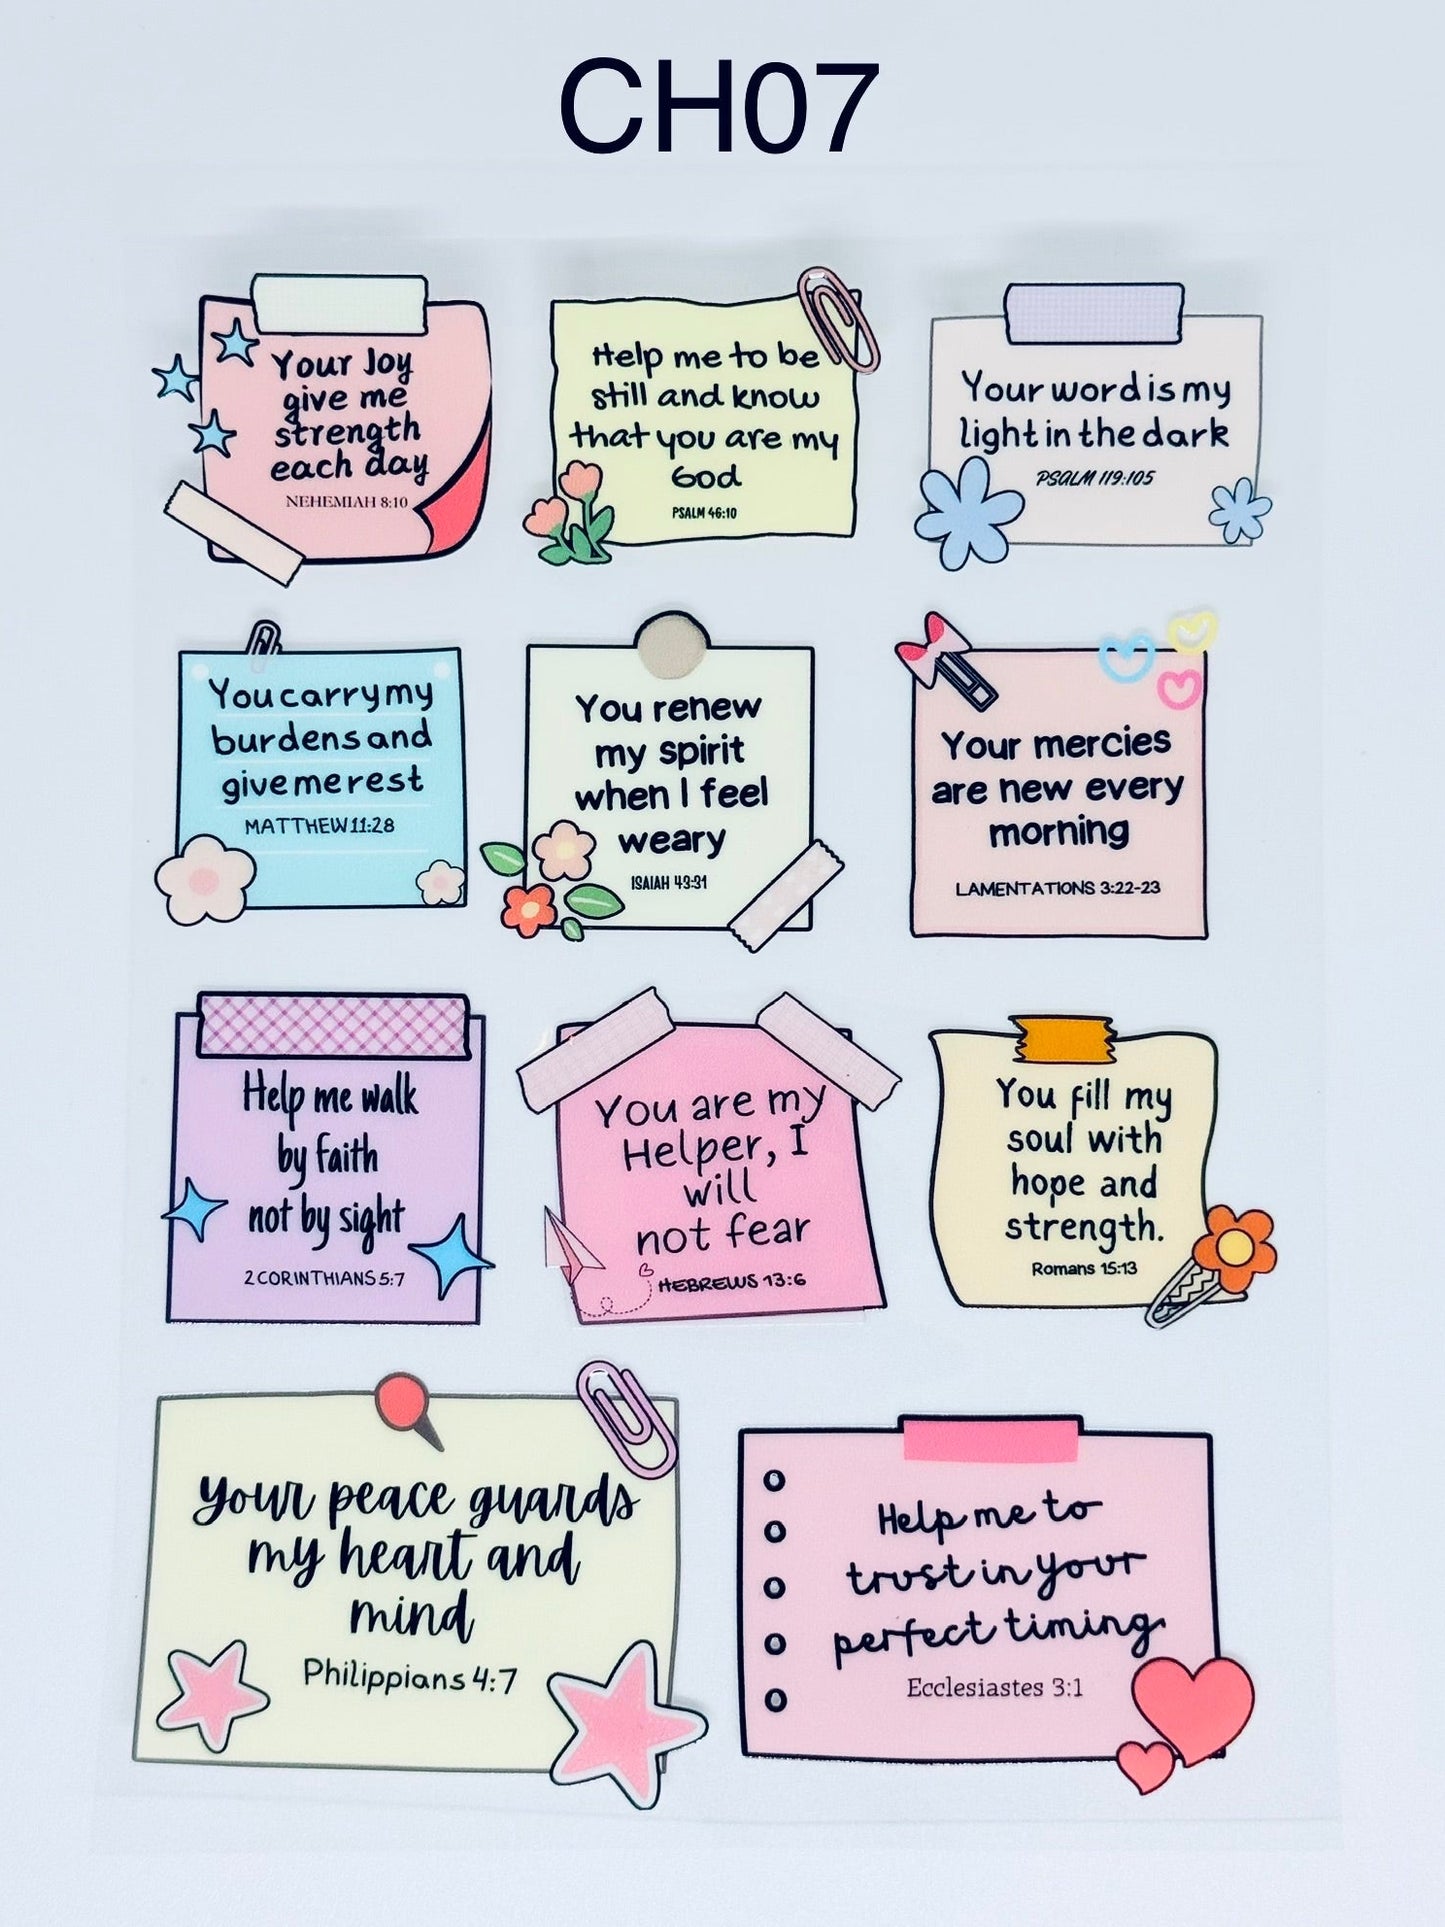 CH07
Your Joy
give me
strength
each day
NEHEMIAH 8:10
Help me to be
still and know
that you are my
God
PSALM 46:10
Your word is my
light in the dark
PSALM 119:105
You carry my
burdens and
give me rest
MATTHEW 11:28
You renew
my spirit
when I feel
weary
ISAIAH 43:31
Your mercies
are new every
morning
LAMENTATIONS 3:22-23
Help me walk
by faith
not by sight
2 CORINTHIANS 5:7
You are my
Helper, I
will
not fear
HEBREWS 13:6
You fill my
soul with
hope and
strength.
Romans 15:13
Your peace guards
my heart and
mind
Philippians 4:7
Help me to
trust in your
perfect timing
Ecclesiastes 3:1